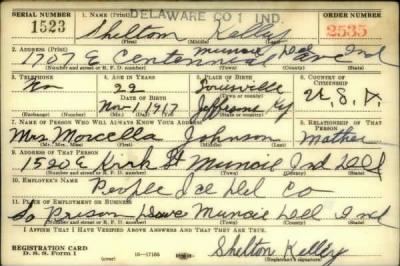 DELAWARE CO 1 IND.
SERIAL NUMBER 1. NAME (Print) ORDER NUMBER
1523 Shelton Kelley 2535
(First) (Middle) (Last)
2. ADDRESS (Print)
1707 E Centennial Ave Muncie Del Ind
(Number and street or R. F. D. number) (Town) (County) (State)
3. TELEPHONE 4. AGE IN YEARS 5. PLACE OF BIRTH 6. COUNTRY OF CITIZENSHIP
No 22 Louisville
DATE OF BIRTH
Nov 1 1917 Jefferson Ky U.S.A.
(Exchange) (Number) (Mo.) (Day) (Yr.) (State or country)
7. NAME OF PERSON WHO WILL ALWAYS KNOW YOUR ADDRESS 8. RELATIONSHIP OF THAT PERSON
Mrs. Morcella Johnson Mother
(Mr., Mrs., Miss) (First) (Middle) (Last)
9. ADDRESS OF THAT PERSON
1520 E Kirk St Muncie Ind Dell
(Number and street or R. F. D. number) (Town) (County) (State)
10. EMPLOYER'S NAME
People Ice Del Co
11. PLACE OF EMPLOYMENT OR BUSINESS
So Muncie Dell Ind
(Number and street or R. F. D. number) (Town) (County) (State)
I AFFIRM THAT I HAVE VERIFIED ABOVE ANSWERS AND THAT THEY ARE TRUE.
REGISTRATION CARD
D. S. S. Form 1 16—17105 Shelton Kelley
(Registrant's signature)